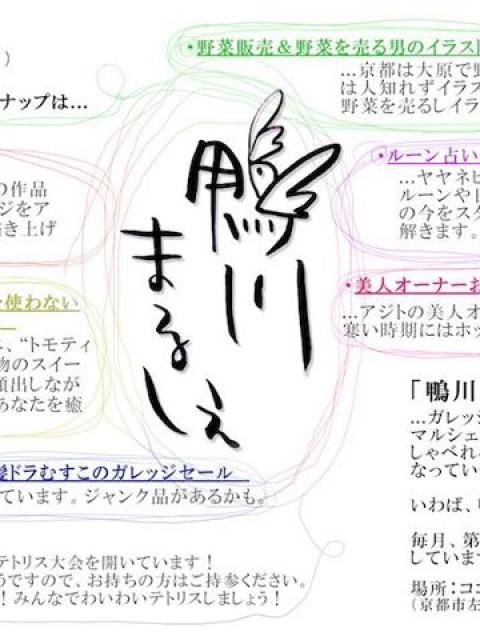 ）
ナップは…
・野菜販売＆野菜を売る男のイラスト
…京都は大原で野
は人知れずイラス
野菜を売るしイラ
の作品
ジをア
き上げ
・ルーン占い
…ヤヤネヒ
ルーンや
の今をスタ
解きます。
鴨川
まるしぇ
使わない
、“トモティ
物のスイー
顔出しなが
あなたを癒
・美人オーナーお
…アジトの美人オ
寒い時期にはホッ
ドラむすこのガレッジセール
ています。ジャンク品があるかも。
「鴨川
…ガレッジ
マルシェ
しゃべれる
なってい
いわば、
毎月、第
しています
場所：ココ
（京都市左
テトリス大会を開いています！
うですので、お持ちの方はご持参ください。
！みんなでわいわいテトリスしましょう！